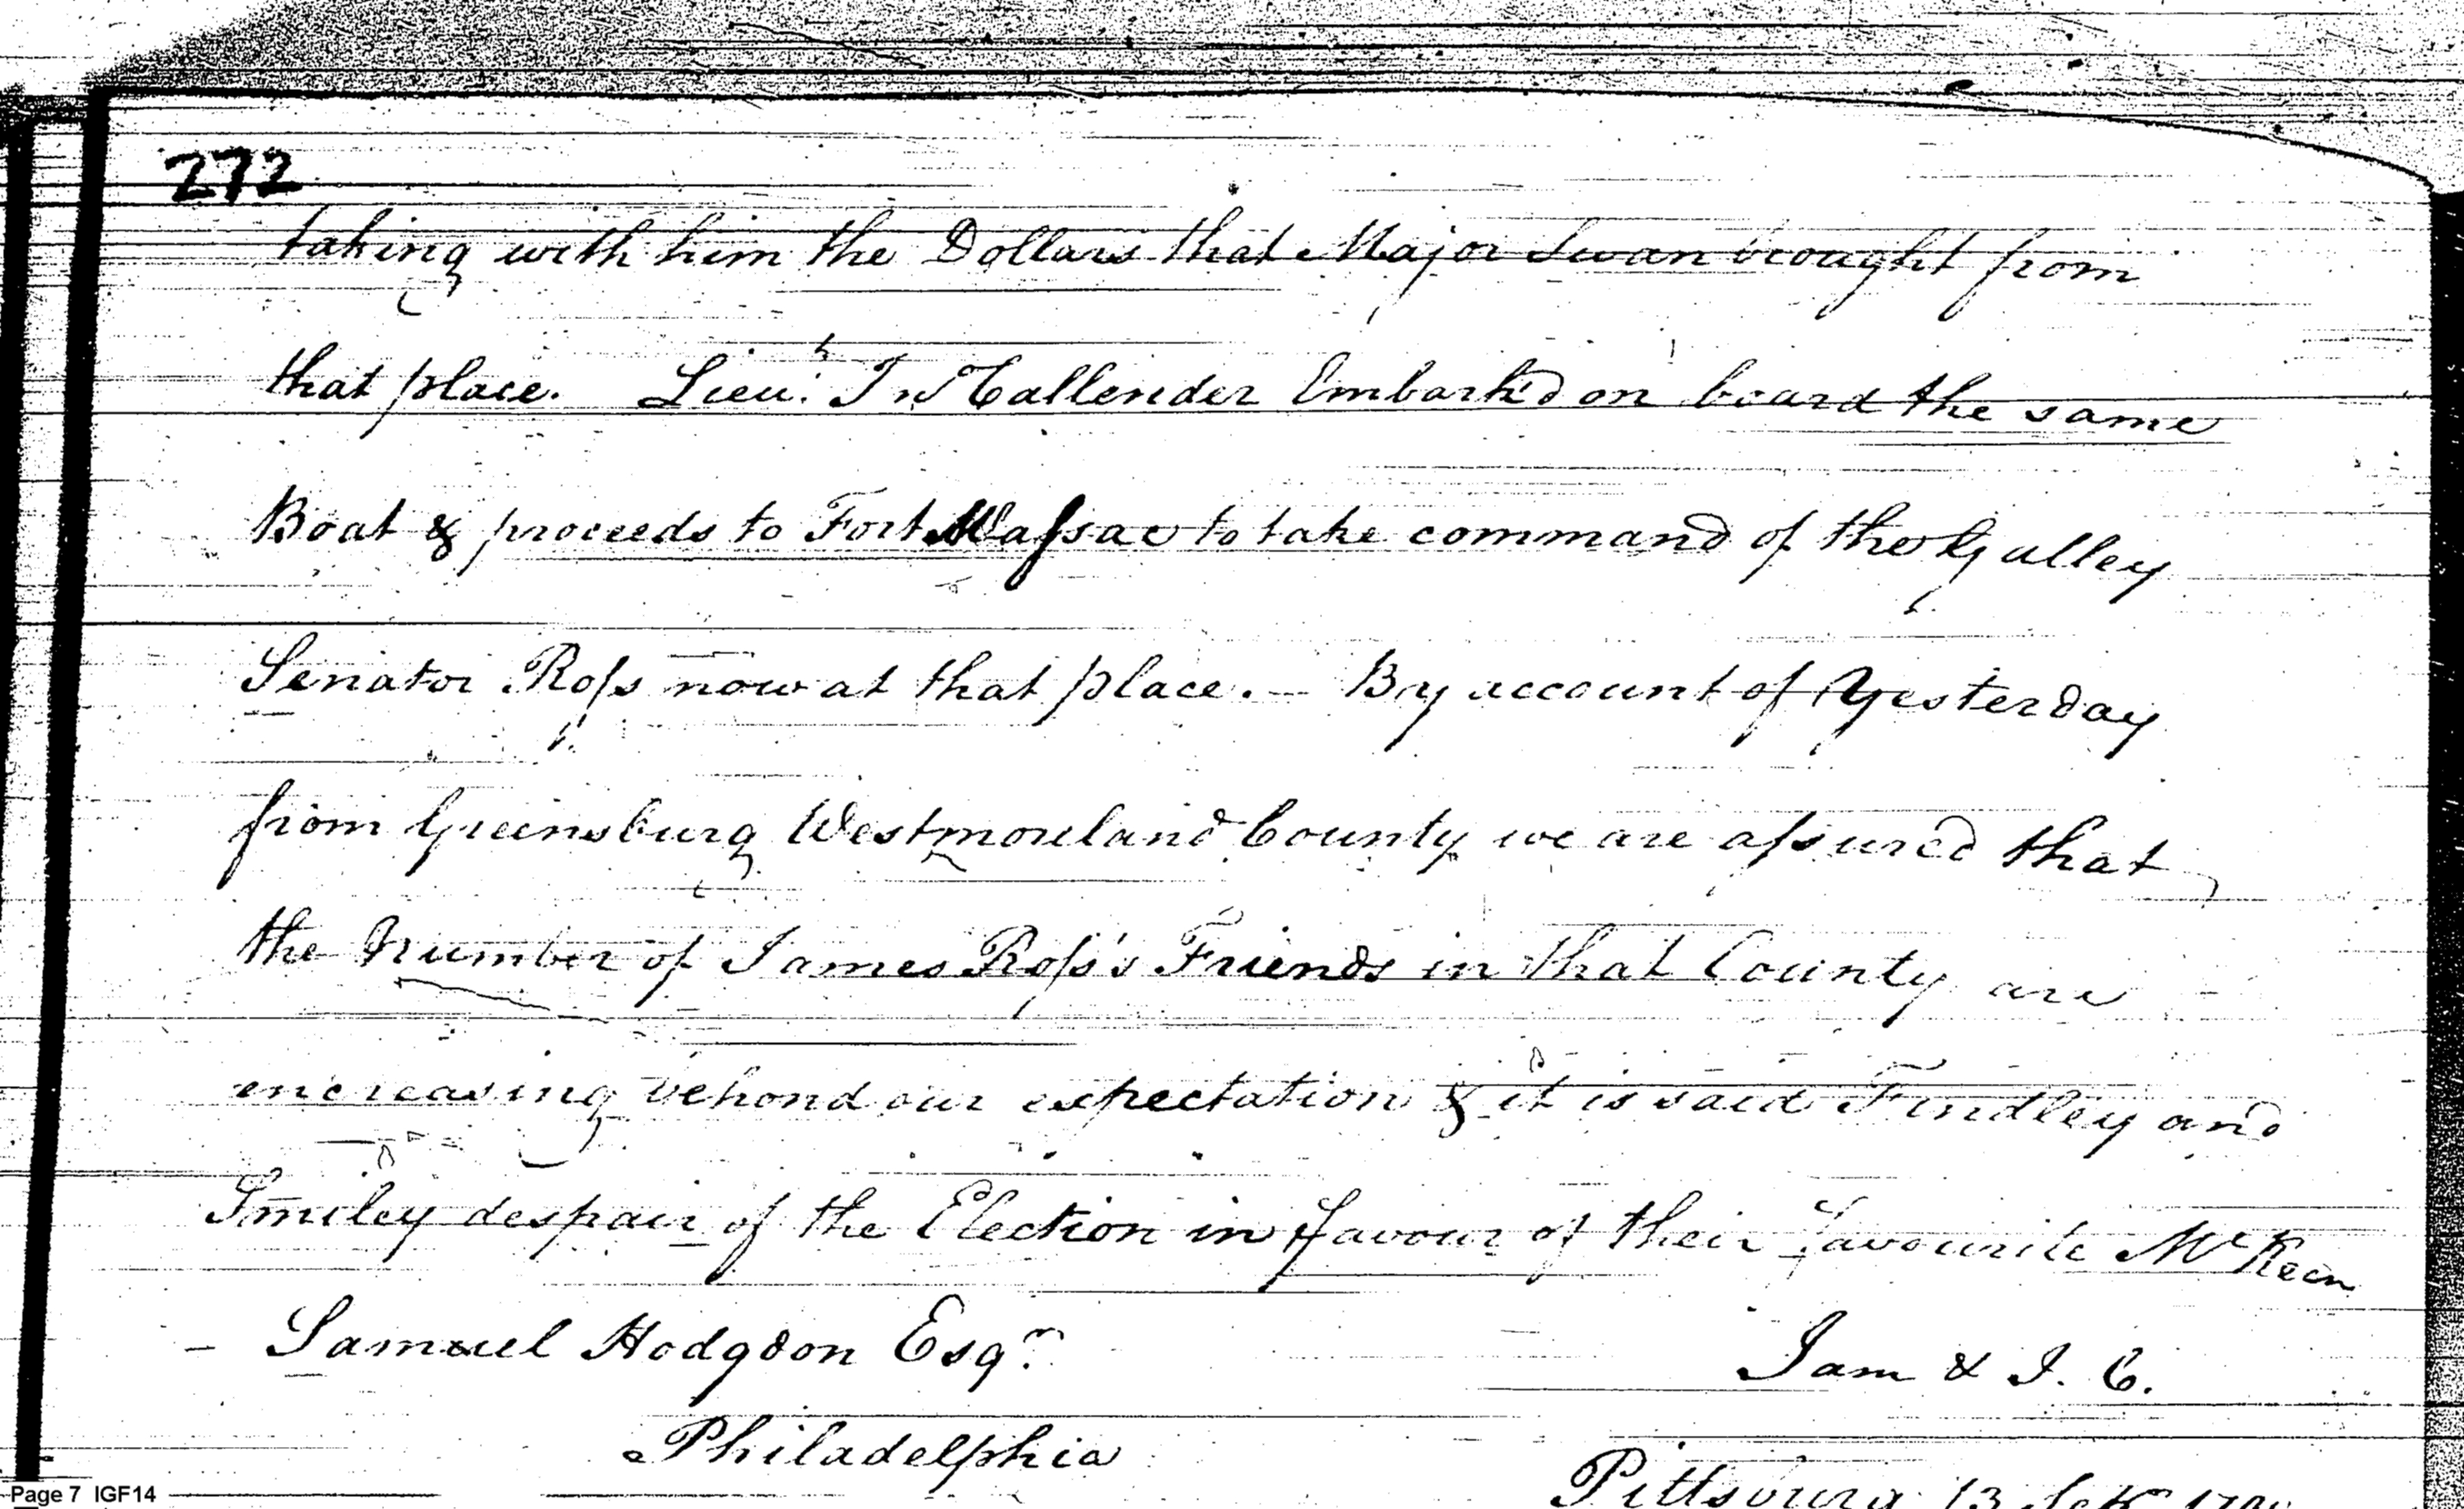 272
taking with him the Dollars that Major Swan brought from
that place. Lieut. Jn Callender Embark'd on board the same
Boat & proceeds to Fort Massac to take command of the Galley
Senator Ross now at that place. — By account of Yesterday
from Greensburg Westmoreland County we are assured that
the Number of James Ross's Friends in that County are
encreasing behond our expectation & it is said Findley and
Smiley despair of the Election in favour of their favourite McKean
- Samuel Hodgdon Esqr.
I am & I. C.
Philadelphia
Pittsburg 13
Page 7 IGF14